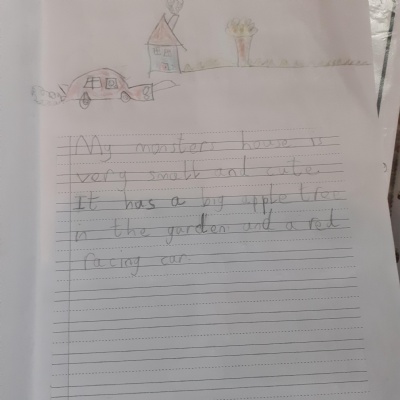 My monsters house is
very small and cute.
It has a big apple tree
in the garden and a red
racing car.